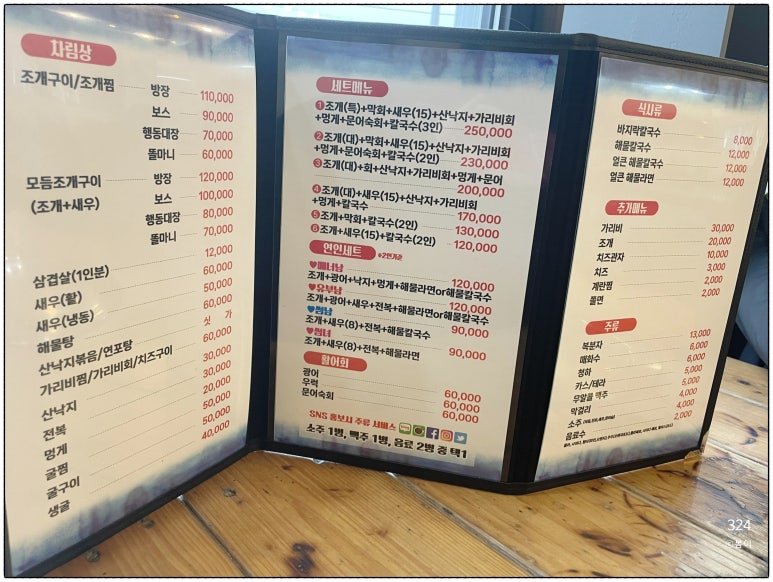 차림상
조개구이/조개찜 방장 110,000
보스 90,000
행동대장 70,000
똘마니 60,000
모듬조개구이 방장 120,000
(조개+새우) 보스 100,000
행동대장 80,000
똘마니 70,000
삼겹살(1인분) 12,000
새우(활) 60,000
새우(냉동) 50,000
해물탕 60,000
산낙지볶음/연포탕 싯 가
가리비찜/가리비회/치즈구이 60,000
산낙지 30,000
전복 30,000
멍게 20,000
굴찜 50,000
굴구이 50,000
생굴 40,000
세트메뉴
❶조개(특)+막회+새우(15)+산낙지+가리비회
+멍게+문어숙회+칼국수(3인) 250,000
❷조개(대)+막회+새우(15)+산낙지+가리비회
+멍게+문어숙회+칼국수(2인) 230,000
❸조개(대)+회+산낙지+가리비회+멍게+문어
200,000
❹조개(대)+새우(15)+산낙지+가리비회
+멍게+칼국수 170,000
❺조개+막회+칼국수(2인) 130,000
❻조개+새우(15)+칼국수(2인) 120,000
연인세트 ※2인기준
♥매너남 120,000
조개+광어+낙지+멍게+해물라면or해물칼국수
♥유부남 120,000
조개+광어+새우+전복+해물라면or해물칼국수
♥썸남 90,000
조개+새우(8)+전복+해물칼국수
♥썸녀 90,000
조개+새우(8)+전복+해물라면
활어회
광어 60,000
우럭 60,000
문어숙회 60,000
SNS 홍보시 주류 서비스
소주 1병, 맥주 1병, 음료 2병 중 택1
식사류
바지락칼국수
해물칼국수 12,000
얼큰 해물칼국수 12,000
얼큰 해물라면 12,000
추가메뉴
가리비 30,000
조개 20,000
치즈관자 10,000
치즈 3,000
계란찜 2,000
쫄면 2,000
주류
복분자 13,000
매화수 6,000
청하 6,000
카스/테라 5,000
무알콜 맥주 5,000
막걸리 4,000
소주 4,000
음료수 2,000
324